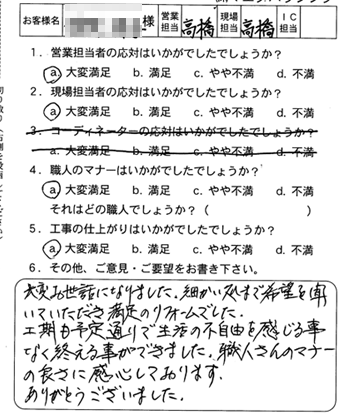 お客様名 様 営業担当 高橋 現場担当 高橋 IC担当
1．営業担当者の応対はいかがでしたでしょうか？
a. 大変満足 b. 満足 c. やや不満 d. 不満
2．現場担当者の応対はいかがでしたでしょうか？
a. 大変満足 b. 満足 c. やや不満 d. 不満
3．コーディネーターの応対はいかがでしたでしょうか？
a. 大変満足 b. 満足 c. やや不満 d. 不満
4．職人のマナーはいかがでしたでしょうか？
a. 大変満足 b. 満足 c. やや不満 d. 不満
それはどの職人でしょうか？（ ）
5．工事の仕上がりはいかがでしたでしょうか？
a. 大変満足 b. 満足 c. やや不満 d. 不満
6．その他、ご意見・ご要望をお書き下さい。
大変お世話になりました。細かい処まで希望を聞
いていただき満足のリフォームでした。
工期も予定通りで生活の不自由を感じる事
なく終える事ができました。職人さんのマナー
の良さに感心しております。
ありがとうございました。